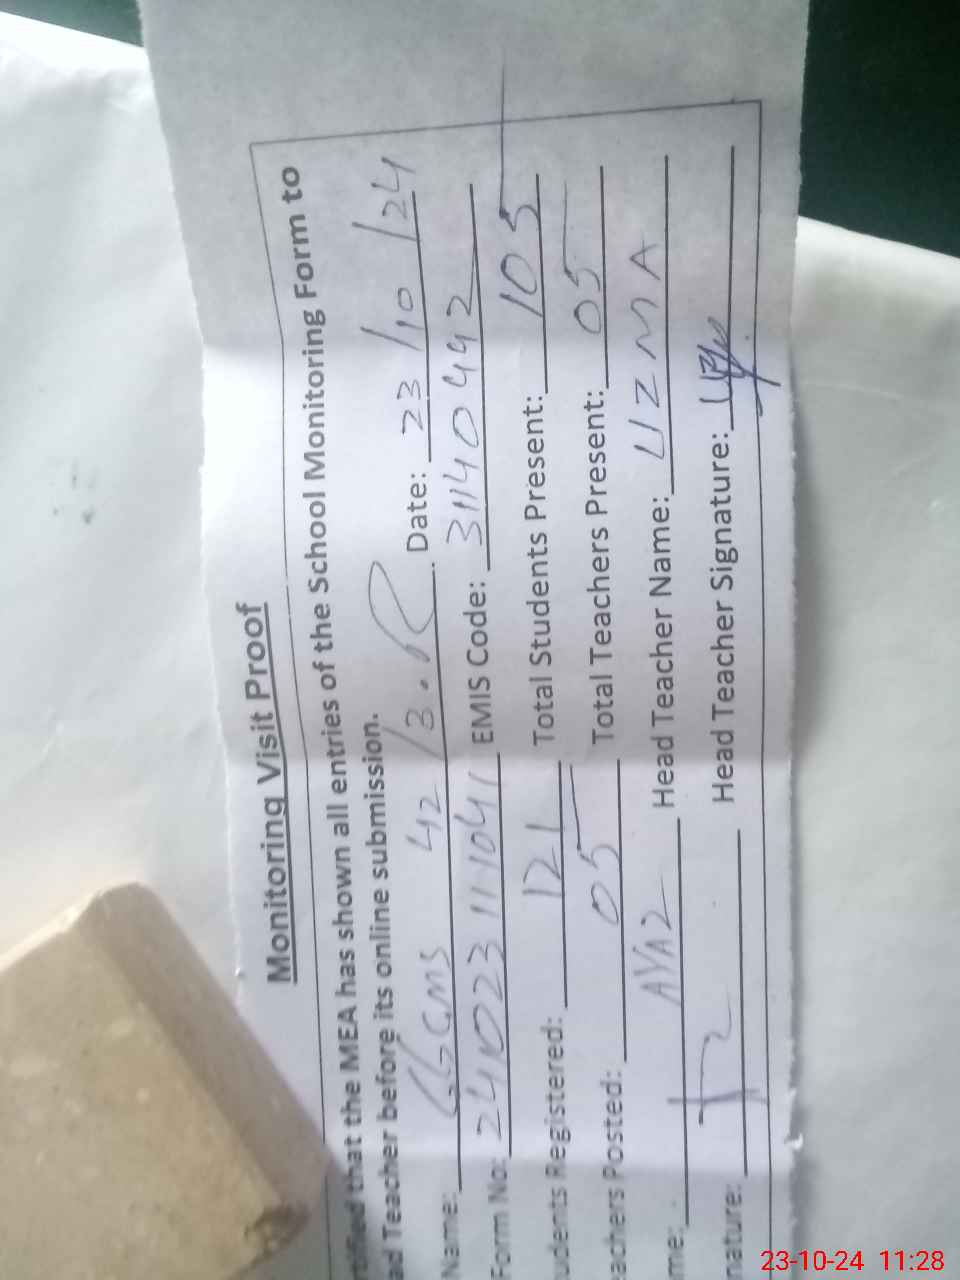 Monitoring Visit Proof
that the MEA has shown all entries of the School Monitoring Form to
ad Teacher before its online submission.
Name: GGCMS 42 /3.R Date: 23/10/24
Form No: 241023111041 EMIS Code: 31140442
udents Registered: 121 Total Students Present: 105
eachers Posted: 05 Total Teachers Present: 05
me: AYAZ Head Teacher Name: UZMA
nature: Head Teacher Signature:
23-10-24 11:28